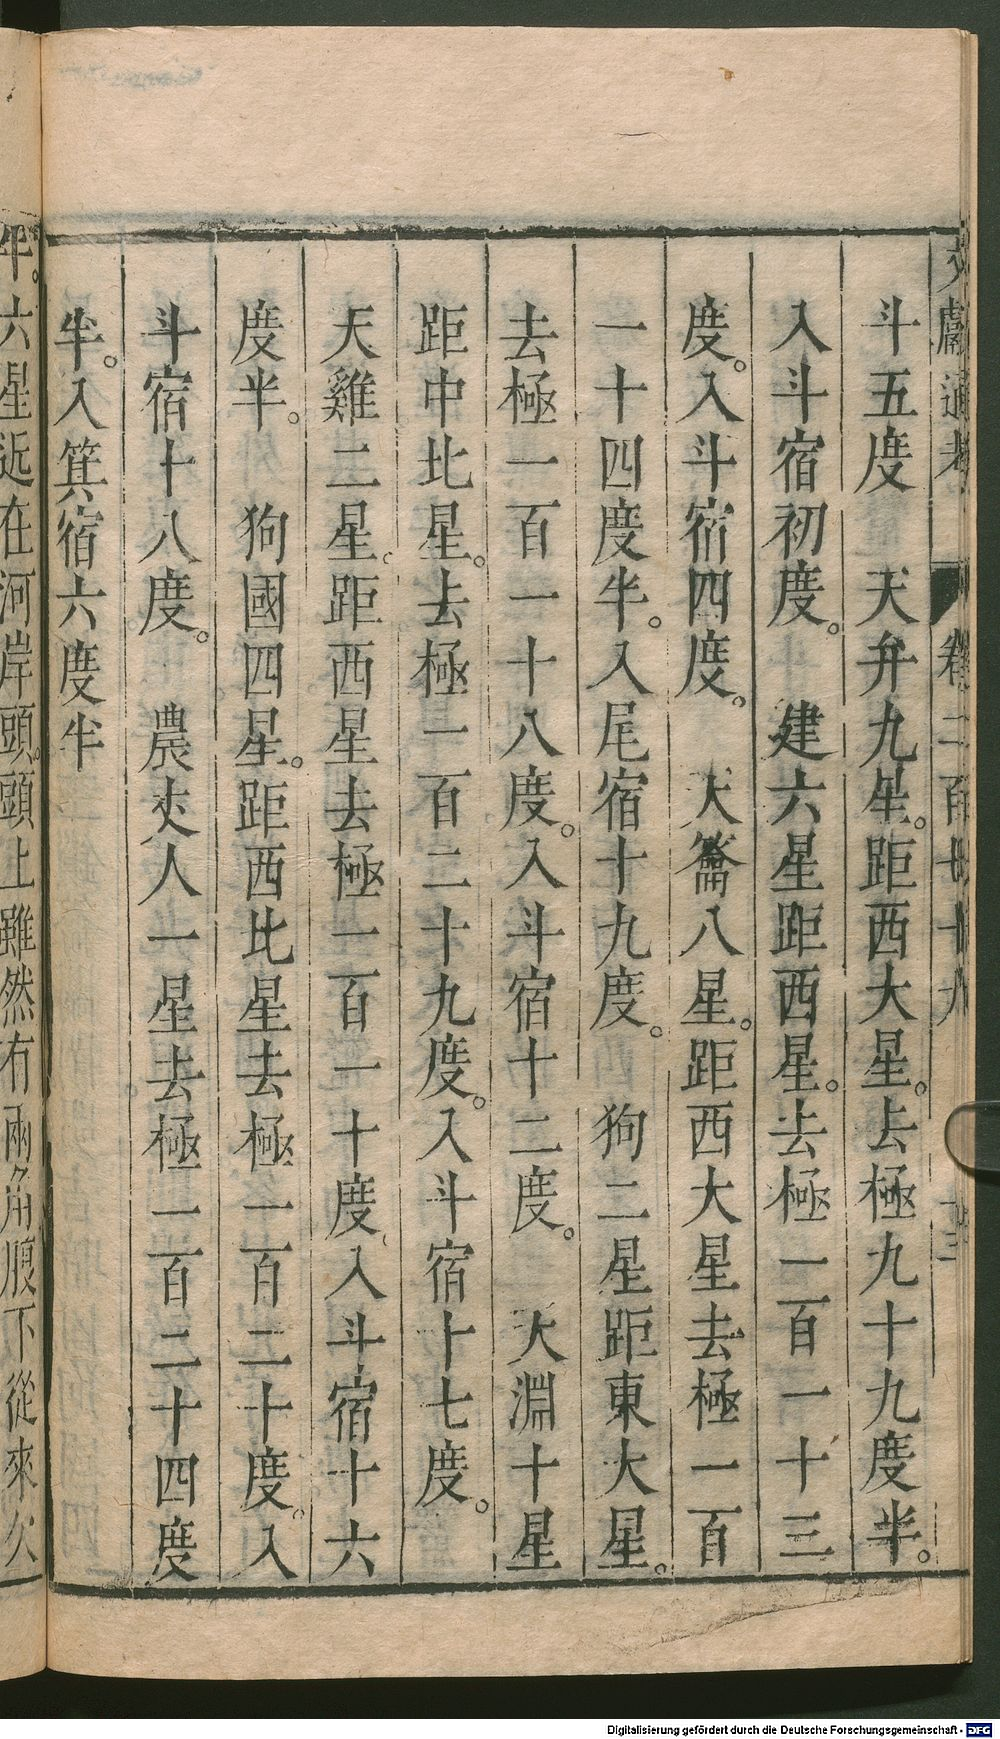 文獻通考 卷二百七十九
斗五度　天弁九星。距西大星。去極九十九度半。
入斗宿初度。　建六星距西星。去極一百一十三
度。入斗宿四度。　天籥八星。距西大星去極一百
一十四度半。入尾宿十九度。　狗二星距東大星。
去極一百一十八度。入斗宿十二度。　天淵十星
距中北星。去極一百二十九度。入斗宿十七度。
天雞二星。距西星去極一百一十度、入斗宿十六
度半。　狗國四星。距西比星去極一百二十度。入
斗宿十八度。　農丈人一星去極一百二十四度
半。入箕宿六度半
牛。六星近在河岸頭。頭上雖然有兩角腹下從來欠
Digitalisierung gefördert durch die Deutsche Forschungsgemeinschaft - DFG